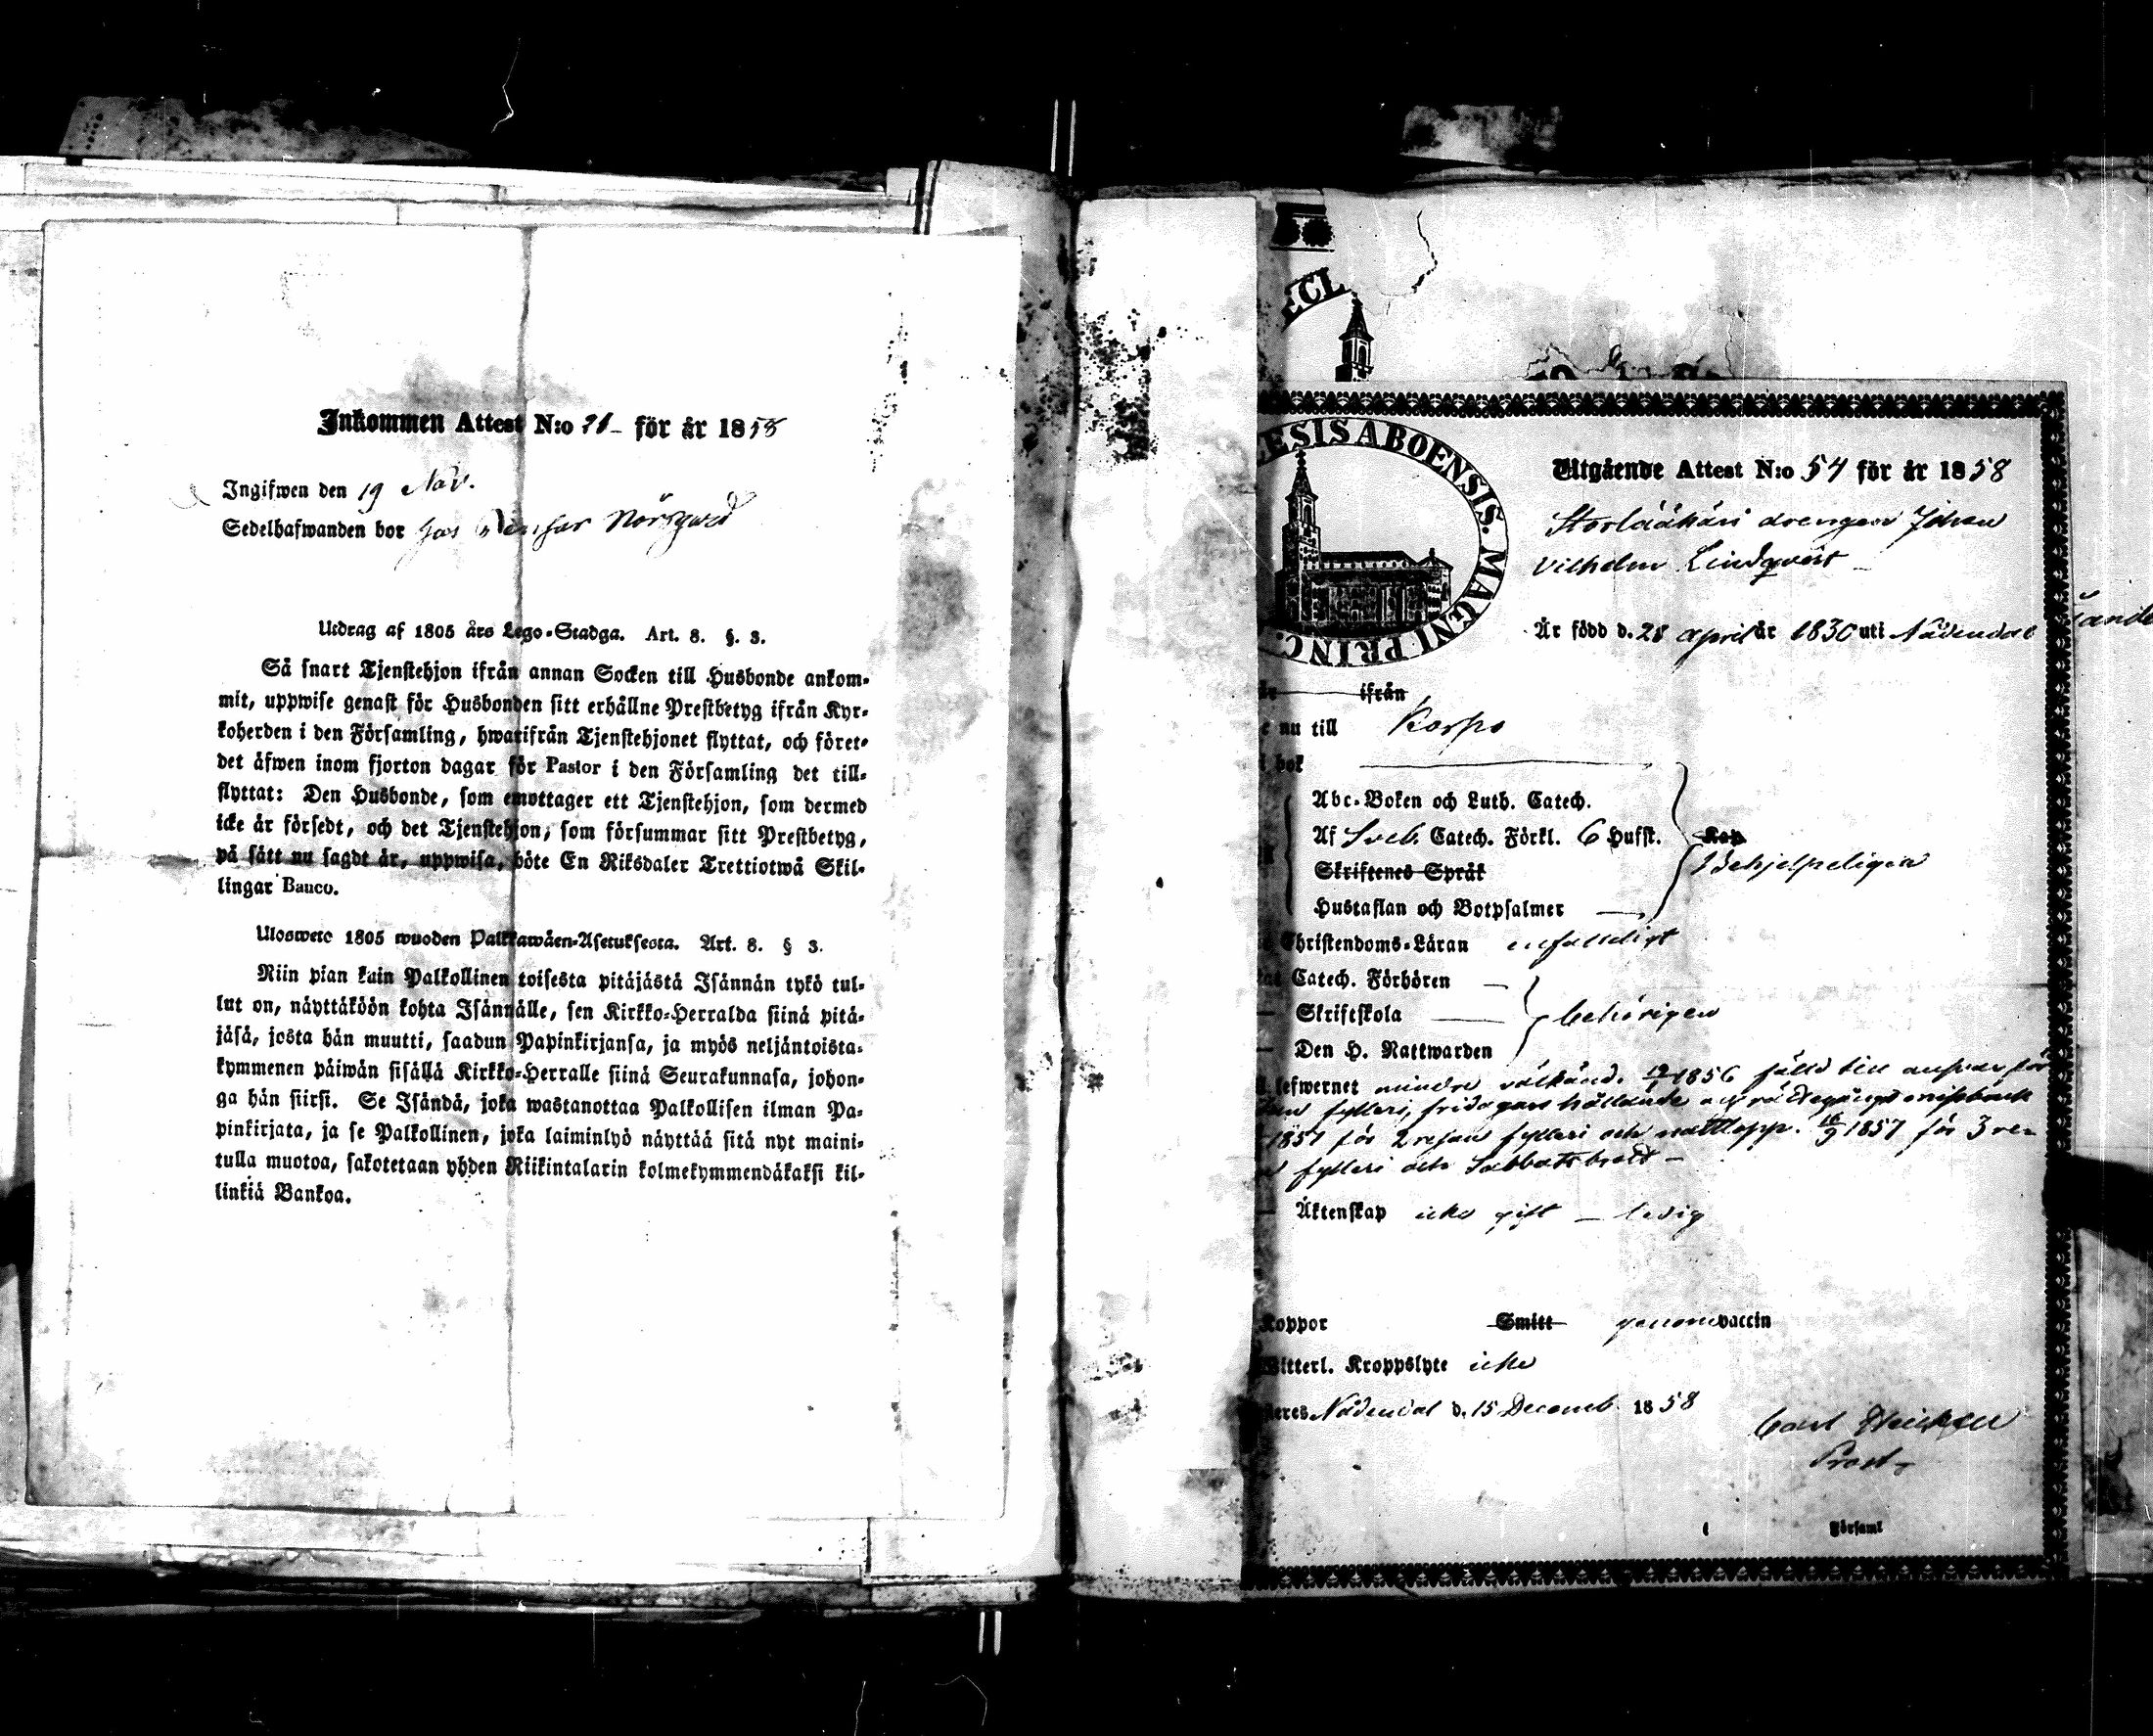 Inkommen Attest N:o 21 för år 1858
Ingifwen den 19 Nov.
Sedelhafwanden bor hos
Utdrag af 1805 års Lego-Stadga. Art. 8. §. 3.
Så snart Tjenstehjon ifrån annan Socken till Husbonde ankom-
mit, uppwise genast för Husbonden sitt erhållne Prestbetyg ifrån Kyr-
koherden i den Församling, hwarifrån Tjenstehjonet flyttat, och föret-
det äfwen inom fjorton dagar för Pastor i den Församling det till-
flyttat: Den Husbonde, som emottager ett Tjenstehjon, som dermed
icke är försedt, och det Tjenstehjon, som försummar sitt Prestbetyg,
på sätt nu sagdt är, uppwisa, böte En Riksdaler Trettiotwå Skil-
lingar Banco.
Uloswete 1805 wuoden Palkkawäen-Asetuksesta. Art. 8. § 3.
Niin pian kuin Palkollinen toisesta pitäjästä Isännän tykö tul-
lut on, näyttäköön kohta Isännälle, sen Kirkko-Herralda siinä pitä-
jäsä, josta hän muutti, saadun Papinkirjansa, ja myös neljäntoista-
kymmenen päiwän sisällä Kirkko-Herralle siinä Seurakunnasa, johon-
ga hän siirsi. Se Isändä, joka wastanottaa Palkollisen ilman Pa-
pinkirjata, ja se Palkollinen, joka laiminlyö näyttää sitä nyt maini-
tulla muotoa, sakotetaan yhden Riikintalarin kolmekymmendäkaksi kil-
linkiä Bankoa.
ECL
ESIS ABOENSIS. MAGNI PRINC.
Utgående Attest N:o 54 för år 1858
drengen Johan
Vilhelm Lindqvist
Är född d. 28 april år 1830 uti Nådendal
ifrån
nu till Korpo
bok
Abc-Boken och Luth. Catech.
Af Sveb. Catech. Förkl. 6 Hufst. Kap
Skriftenes Språk Behjelpeligen
Hustaflan och Botpsalmer
Christendoms-Läran enfaldigt
Catech. Förhören
Skriftskola behörigen
Den H. Nattwarden
lefwernet mindre välkänd. 19/1 1856 fälld till answar för
fylleri, hållande
1857 för 2 resan fylleri och 16/9 1857 för 3 re-
fylleri och Sabbatsbrott
Äktenskap icke gift – ledig
Koppor Smitt genom vaccin
Witterl. Kroppslyte icke
Nådendal d. 15 Decemb. 1858
Carl
Prost
Förſaml